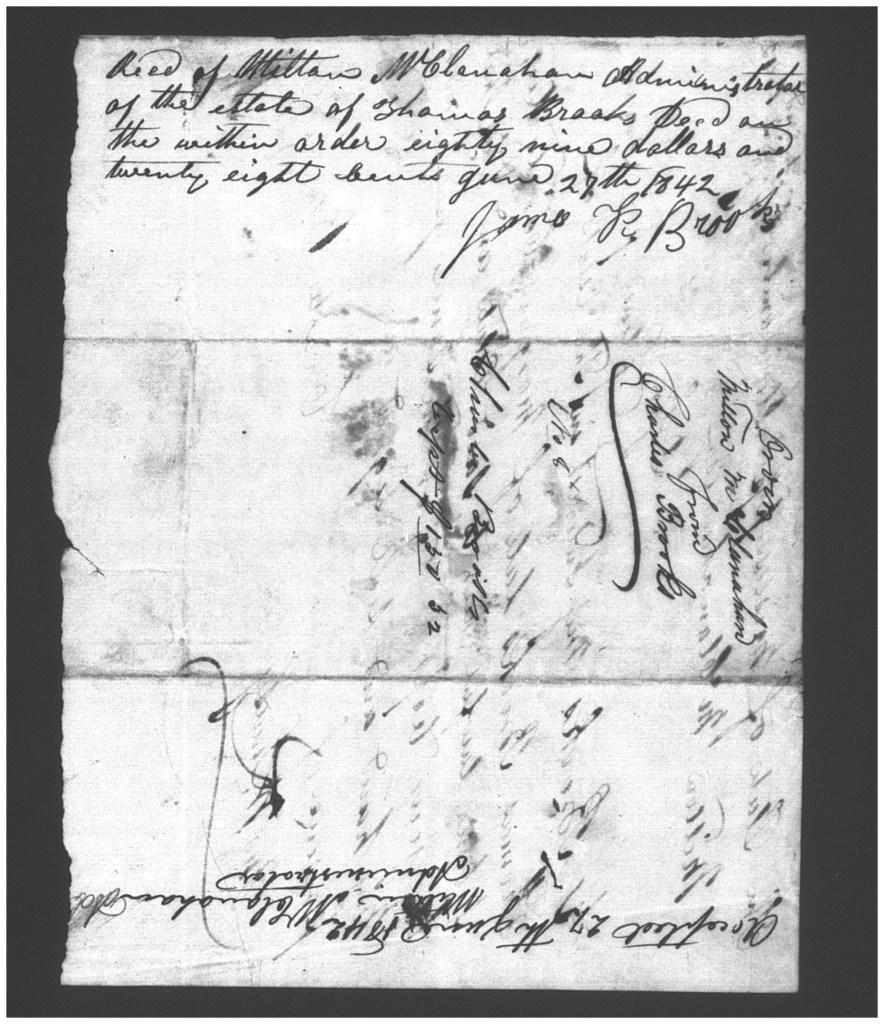 Recd of Milton McClanahan Administrator
of the estate of Thomas Brooks Decd on
the within order eighty nine dollars and
twenty eight Cents June 27th 1842
Brooks
Order
Milton McClanahan
from
Charles Brooks
No. 8
Charles Brooks
130 32
Accepted 27th June 1842
Milton McClanahan
Administrator